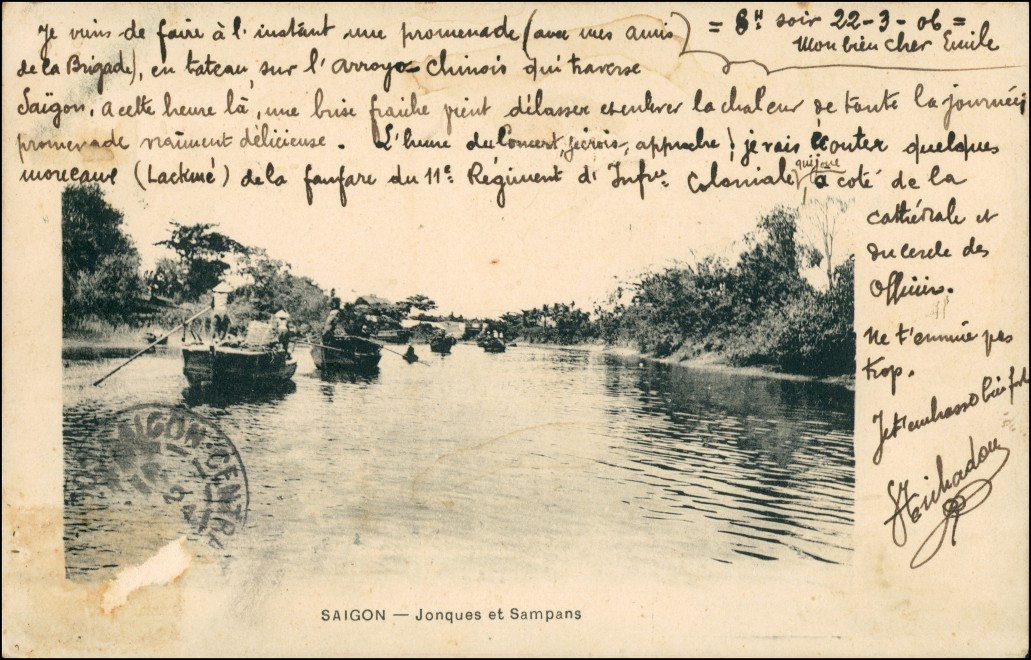 = 8H soir 22-3-06 =
Mon bien cher Emile
Je viens de faire à l'instant une promenade (avec mes amis
de la Brigade), en bateau sur l'arroyo-Chinois qui traverse
Saïgon, a cette heure là, une brise fraiche vient délasser et enlever la chaleur de toute la journée,
promenade vraiment délicieuse. L'heure du Concert, je crois, approche! je vais écouter quelques
morceaux (Lackmé) de la fanfare du 11e Régiment d'Infrie Coloniale, qui joue a coté de la
cathédrale et
du cercle des
Officiers.
Ne t'ennuie pas
trop.
Je t'embrasse bien fort
SAIGON-CENTRAL
SAIGON — Jonques et Sampans